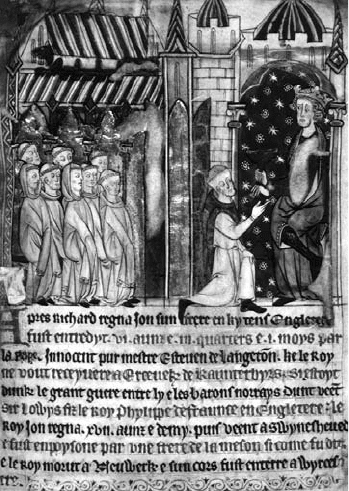 pres Richard regna Jon sun frere en ky tens Engletere
fust entredyt .vi. aunz e .iii. quarters e .i. moys par
la Pope Innocent pur mestre Esteven de Langeton ke le Roy
ne vout receyvere a de si
le grant guere entre ly e les barons norrays dunt vent
Sir Lowys fiz le Roy Phylippe de Fraunce en Engletere le
Roy Jon regna .xvii. aunz e demy puis vent a Swynesheved
e fust enpoysone par une frere de la meson si come fu dit
e le Roy morut a Neuwerk e sun cors fust enterre a Wyrecest